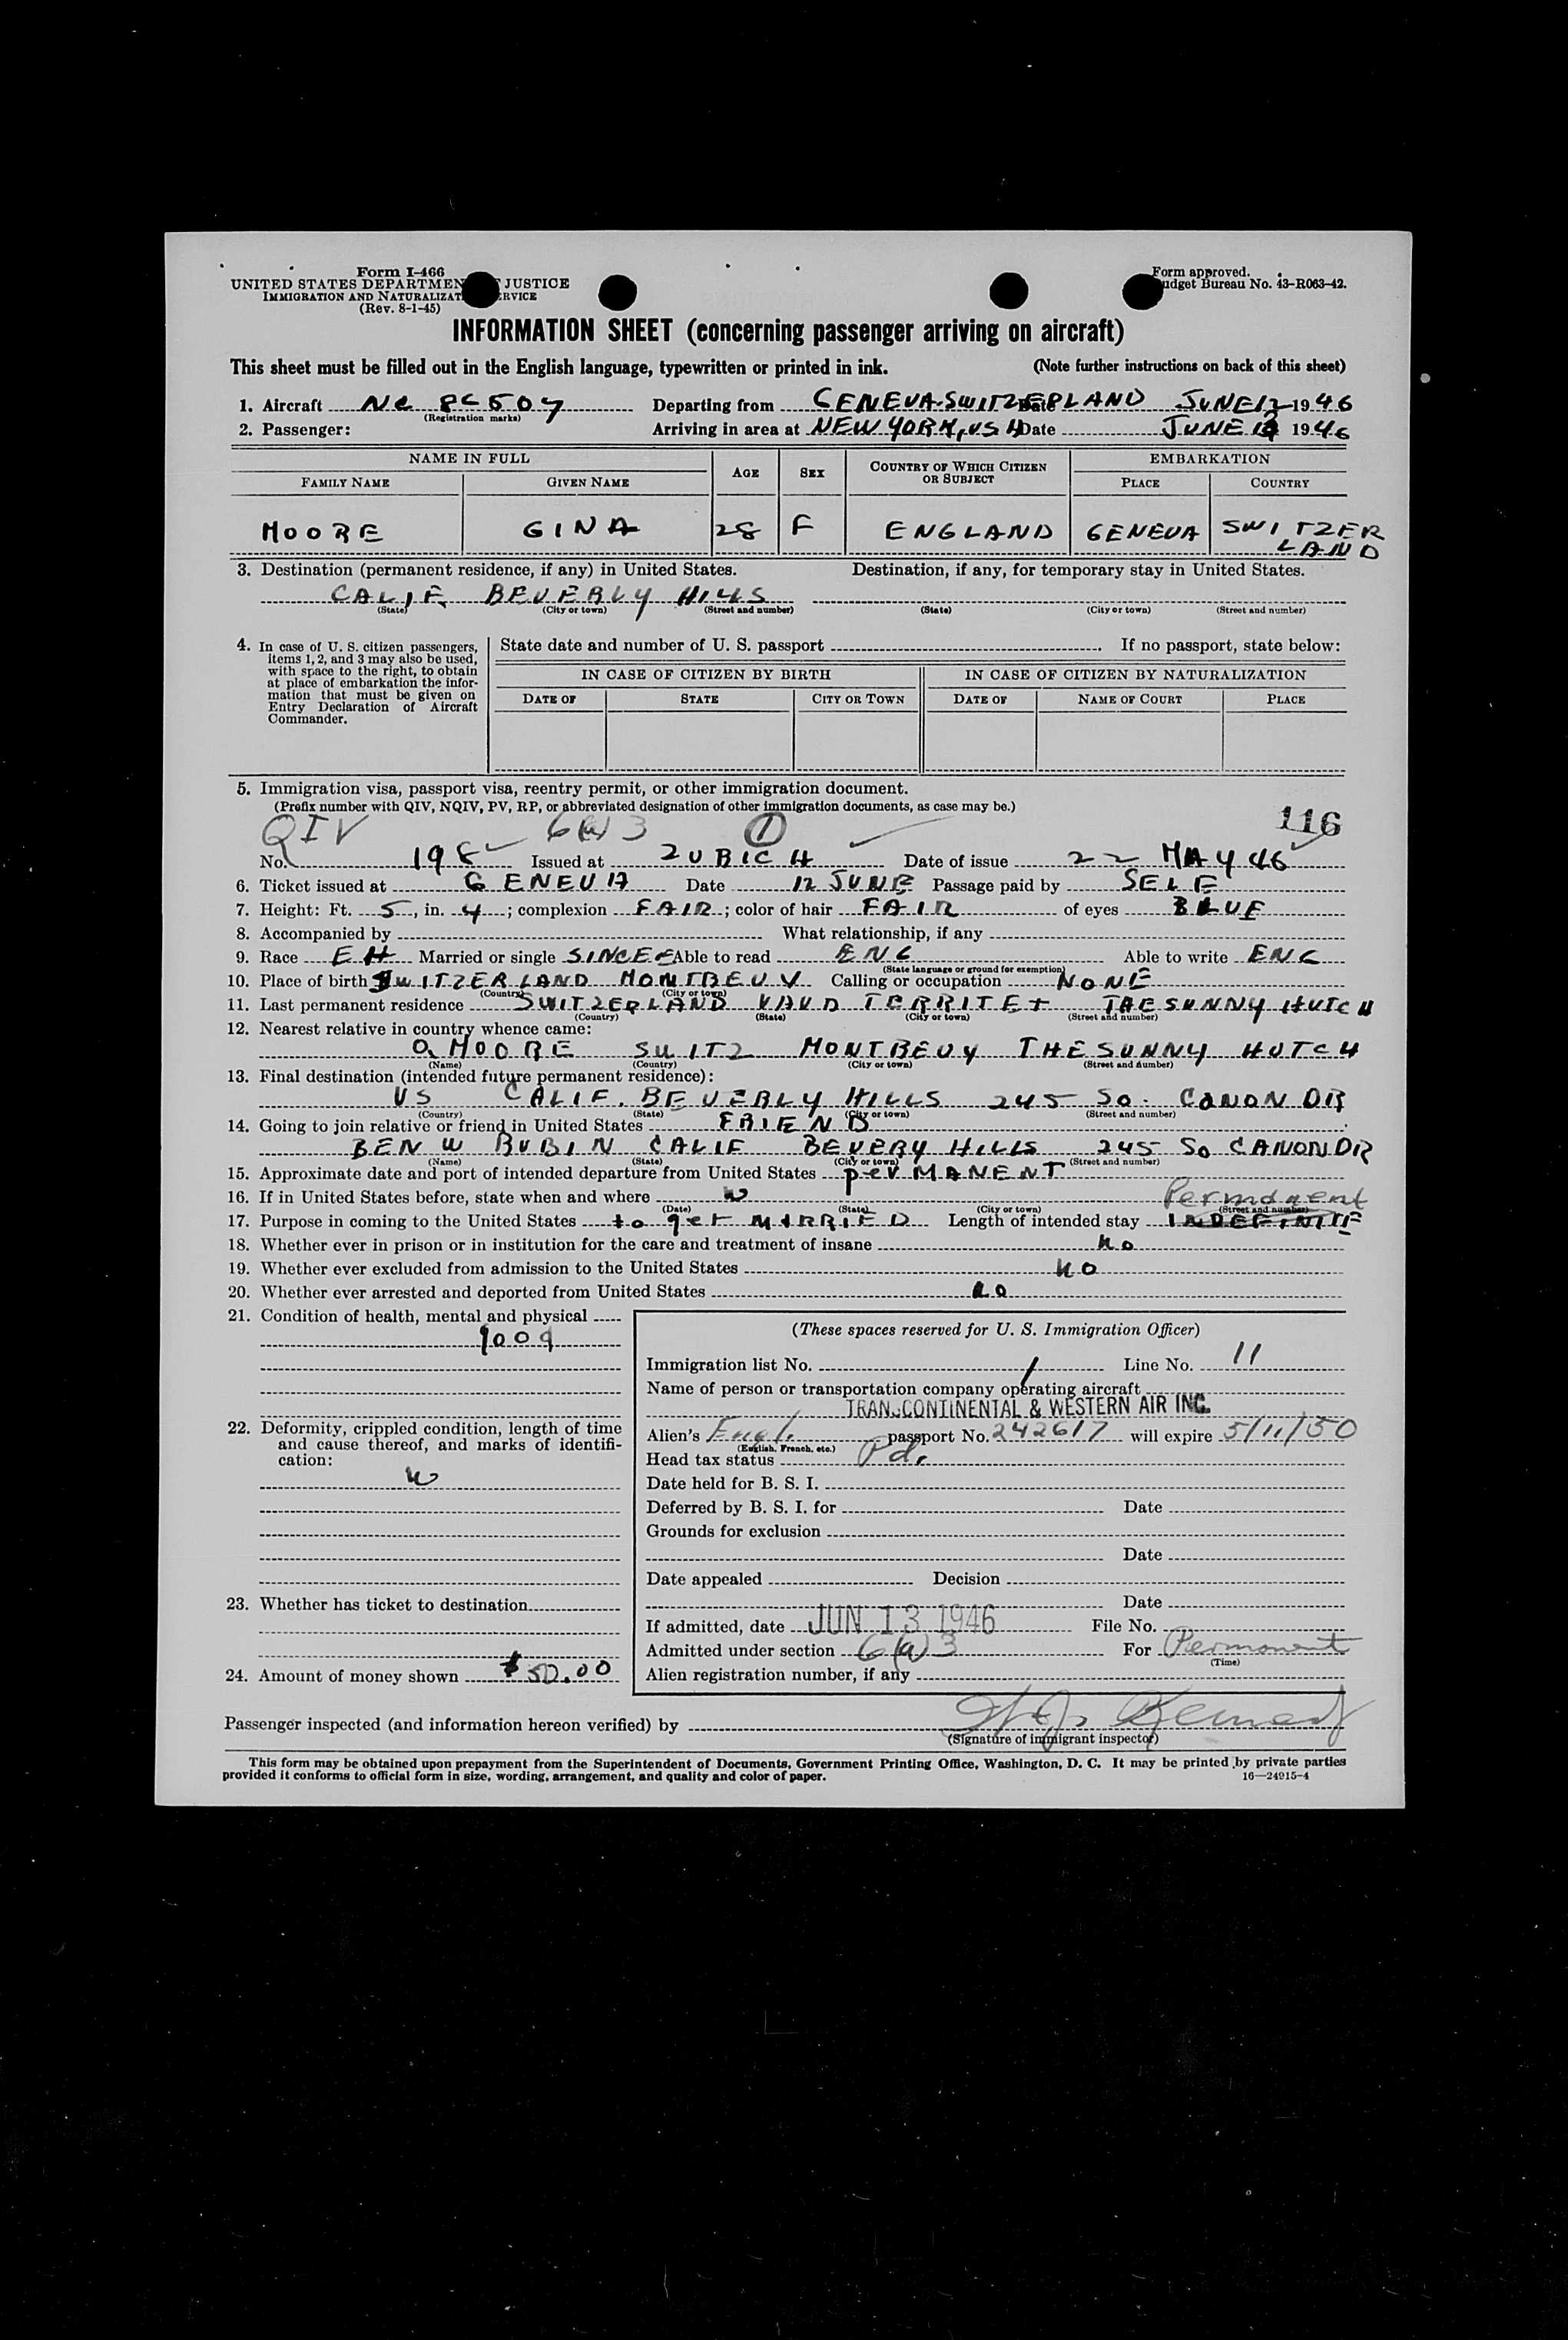 Form I-466
UNITED STATES DEPARTMENT OF JUSTICE
IMMIGRATION AND NATURALIZATION SERVICE
(Rev. 8-1-45)
Form approved.
Budget Bureau No. 43-R063-42.
INFORMATION SHEET (concerning passenger arriving on aircraft)
This sheet must be filled out in the English language, typewritten or printed in ink. (Note further instructions on back of this sheet)
1. Aircraft NC 86507 Departing from GENEVA-SWITZERLAND Date JUNE 12 1946
(Registration marks)
2. Passenger: Arriving in area at NEW YORK, USA Date JUNE 13 1946
NAME IN FULL AGE SEX COUNTRY OF WHICH CITIZEN OR SUBJECT EMBARKATION
FAMILY NAME GIVEN NAME PLACE COUNTRY
MOORE GINA 28 F ENGLAND GENEVA SWITZER
LAND
3. Destination (permanent residence, if any) in United States. Destination, if any, for temporary stay in United States.
CALIF. BEVERLY HILLS
(State) (City or town) (Street and number) (State) (City or town) (Street and number)
4. In case of U. S. citizen passengers, items 1, 2, and 3 may also be used, with space to the right, to obtain at place of embarkation the information that must be given on Entry Declaration of Aircraft Commander.
State date and number of U. S. passport If no passport, state below:
IN CASE OF CITIZEN BY BIRTH IN CASE OF CITIZEN BY NATURALIZATION
DATE OF STATE CITY OR TOWN DATE OF NAME OF COURT PLACE
5. Immigration visa, passport visa, reentry permit, or other immigration document.
(Prefix number with QIV, NQIV, PV, RP, or abbreviated designation of other immigration documents, as case may be.)
QIV 6(a)3 1 116
No. 198 Issued at ZURICH Date of issue 22 MAY 46
6. Ticket issued at GENEVA Date 12 JUNE Passage paid by SELF
7. Height: Ft. 5, in. 4; complexion FAIR; color of hair FAIR of eyes BLUE
8. Accompanied by What relationship, if any
9. Race EH Married or single SINGLE Able to read ENG Able to write ENG
(State language or ground for exemption)
10. Place of birth SWITZERLAND MONTREUX Calling or occupation NONE
(Country) (City or town)
11. Last permanent residence SWITZERLAND VAUD TERRITET THE SUNNY HUTCH
(Country) (State) (City or town) (Street and number)
12. Nearest relative in country whence came:
O. MOORE SWITZ MONTREUX THE SUNNY HUTCH
(Name) (Country) (City or town) (Street and number)
13. Final destination (intended future permanent residence):
US CALIF. BEVERLY HILLS 245 SO. CANON DR
(Country) (State) (City or town) (Street and number)
14. Going to join relative or friend in United States FRIEND
BEN W RUBIN CALIF BEVERY HILLS 245 SO CANON DR
(Name) (State) (City or town) (Street and number)
15. Approximate date and port of intended departure from United States perMANENT
16. If in United States before, state when and where
(Date) (State) (City or town) (Street and number)
Permanent
17. Purpose in coming to the United States to get MARRIED Length of intended stay INDEFINITE
18. Whether ever in prison or in institution for the care and treatment of insane no
19. Whether ever excluded from admission to the United States no
20. Whether ever arrested and deported from United States no
21. Condition of health, mental and physical
good
22. Deformity, crippled condition, length of time and cause thereof, and marks of identification:
23. Whether has ticket to destination
24. Amount of money shown $50.00
(These spaces reserved for U. S. Immigration Officer)
Immigration list No. 1 Line No. 11
Name of person or transportation company operating aircraft
TRANSCONTINENTAL & WESTERN AIR INC.
Alien's Engl. passport No. 242617 will expire 5/11/50
(English, French, etc.)
Head tax status Pd.
Date held for B. S. I.
Deferred by B. S. I. for Date
Grounds for exclusion
Date
Date appealed Decision
Date
If admitted, date JUN 13 1946 File No.
Admitted under section 6(a)3 For Permanent
(Time)
Alien registration number, if any
Passenger inspected (and information hereon verified) by
(Signature of immigrant inspector)
This form may be obtained upon prepayment from the Superintendent of Documents, Government Printing Office, Washington, D. C. It may be printed by private parties
provided it conforms to official form in size, wording, arrangement, and quality and color of paper. 16—24915-4